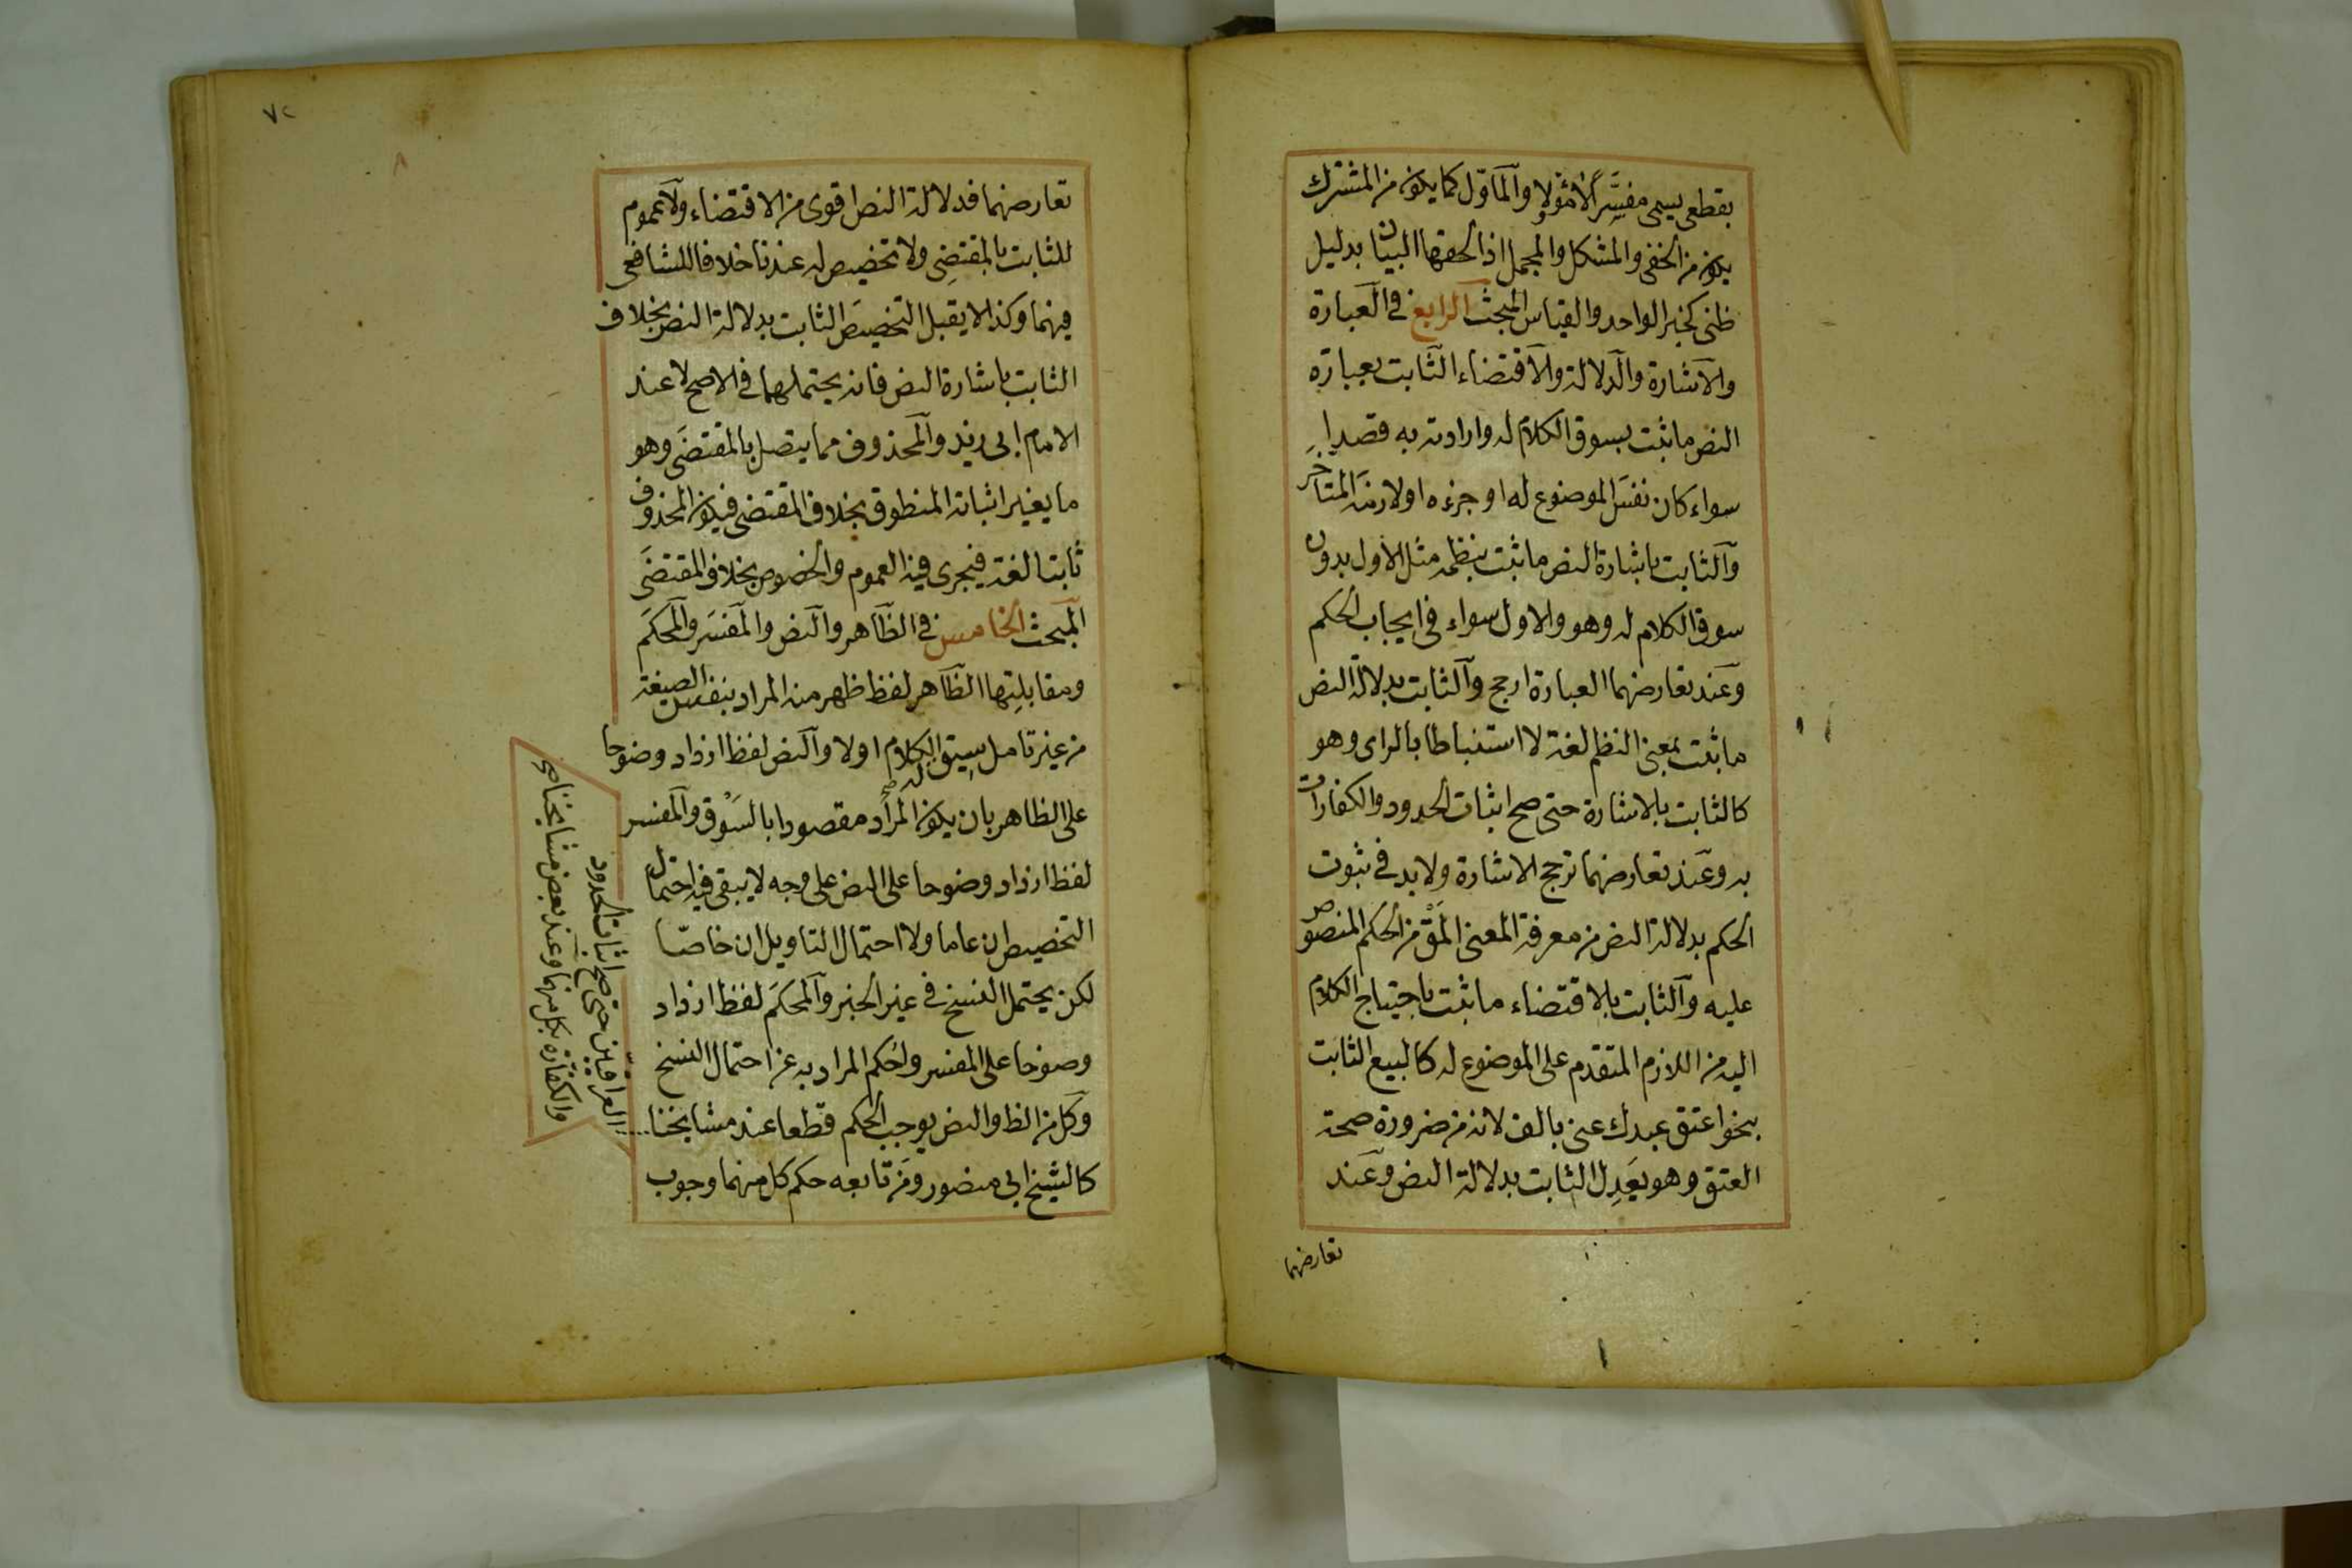 بقطعى يسمى مفسَّراً لا مؤولا والمأوّل كما يكون من المشترك
يكون من الخفى والمشكل والمجمل اذا لحقها البيان بدليل
ظنى كخبر الواحد والقياس المبحث الرابع فى العبارة
والاشارة والدلالة والاقتضاء الثابت بعبارة
النص ما ثبت بسوق الكلام له وارادته به قصدا
سواء كان نفسَ الموضوع له او جزءه او لازمَه المتأخر
والثابت باشارة النص ما ثبت بنظمه مثل الاول بدون
سوق الكلام له وهو والاول سواء فى ايجاب الحكم
وعند تعارضهما العبارة ارجح والثابت بدلالة النص
ما ثبت بمعنى النظم لغة لا استنباطا بالراى وهو
كالثابت بالاشارة حتى صح اثبات الحدود والكفارات
به وعند تعارضهما ترجح الاشارة ولا بد فى ثبوت
الحكم بدلالة النص من معرفة المعنى المق من الحكم المنصوص
عليه والثابت بالاقتضاء ما ثبت باحتياج الكلام
اليه من اللازم المتقدم على الموضوع له كالبيع الثابت
بنحو اعتق عبدك عنى بالف لانه من ضرورة صحة
العتق وهو يَعدِل الثابت بدلالة النص وعند
تعارضهما
٧٢
٨
تعارضهما فدلالة النص اقوى من الاقتضاء ولا عموم
للثابت بالمقتضِى ولا تخصيص له عندنا خلافا للشافعى
فيهما وكذا لا يقبل التخصيصَ الثابت بدلالة النص بخلاف
الثابت باشارة النص فانه يحتملهما فى الاصح لا عند
الامام ابى زيد والمحذوف مما يتصل بالمقتضَى وهو
ما يغير اثباته المنطوق بخلاف المقتضى فيكون المحذوف
ثابتا لغة فيجرى فيه العموم والخصوص بخلاف المقتضَى
المبحث الخامس فى الظاهر والنص والمفسَر والمحكَم
ومقابلتِها الظاهر لفظ ظهر منه المراد بنفس الصيغة
من غير تامل سيق الكلام له اولا والنص لفظ ازداد وضوحا
على الظاهر بان يكون المراد مقصودا بالسَوْق والمفسر
لفظ ازداد وضوحا على النص على وجه لا يبقى فيه احتمال
التخصيص ان عاما ولا احتمال التاويل ان خاصّا
لكن يحتمل النسخ فى غير الخبر والمحكَم لفظ ازداد
وضوحا على المفسر واُحكم المراد به عن احتمال النسخ
وكل من الظ والنص يوجب الحكم قطعا عند مشايخنا
كالشيخ ابى منصور ومن تابعه حكم كل منهما وجوب
العراقيّين حتى صح اثبات الحدود
والكفارة بكل منهما وعند بعض مشايخنا صح